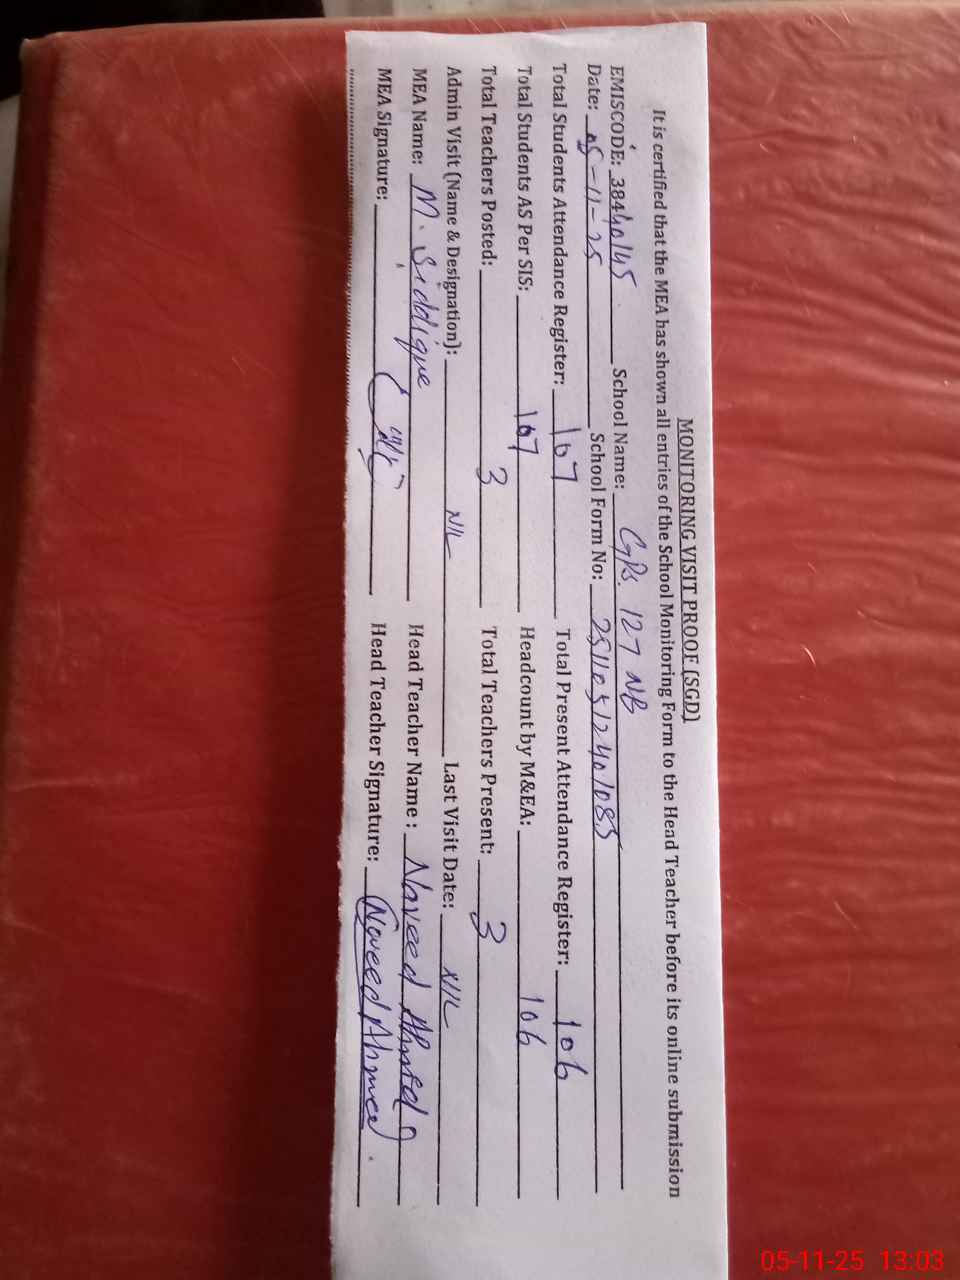 MONITORING VISIT PROOF [SGD]
It is certified that the MEA has shown all entries of the School Monitoring Form to the Head Teacher before its online submission
EMISCODE: 38440145 School Name: GPS. 127 NB
Date: 05-11-25 School Form No: 25110512401085
Total Students Attendance Register: 107 Total Present Attendance Register: 106
Total Students AS Per SIS: 107 Headcount by M&EA: 106
Total Teachers Posted: 3 Total Teachers Present: 3
Admin Visit (Name & Designation): NIL Last Visit Date: NIL
MEA Name: M. Siddique Head Teacher Name : Naveed Ahmed
MEA Signature: Head Teacher Signature: Naveed Ahmed
05-11-25 13:03